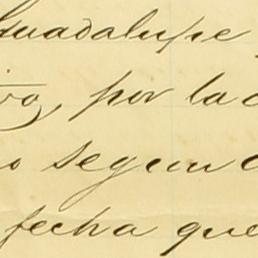 Guadalupe
por la
segun
fecha que